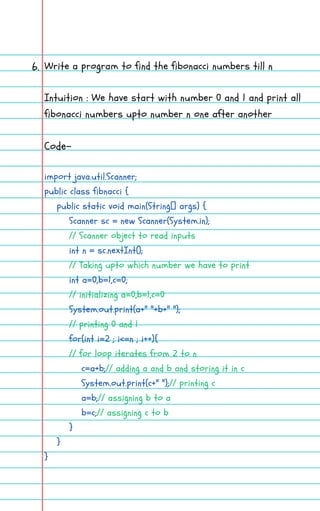 6. Write a program to find the fibonacci numbers till n
Intuition : We have start with number 0 and 1 and print all
fibonacci numbers upto number n one after another
Code-
import java.util.Scanner;
public class fibnacci {
public static void main(String[] args) {
Scanner sc = new Scanner(System.in);
// Scanner object to read inputs
int n = sc.nextInt();
// Taking upto which number we have to print
int a=0,b=1,c=0;
// initializing a=0,b=1,c=0
System.out.print(a+" "+b+" ");
// printing 0 and 1
for(int i=2 ; i<=n ; i++){
// for loop iterates from 2 to n
c=a+b;// adding a and b and storing it in c
System.out.print(c+" ");// printing c
a=b;// assigning b to a
b=c;// assigning c to b
}
}
}